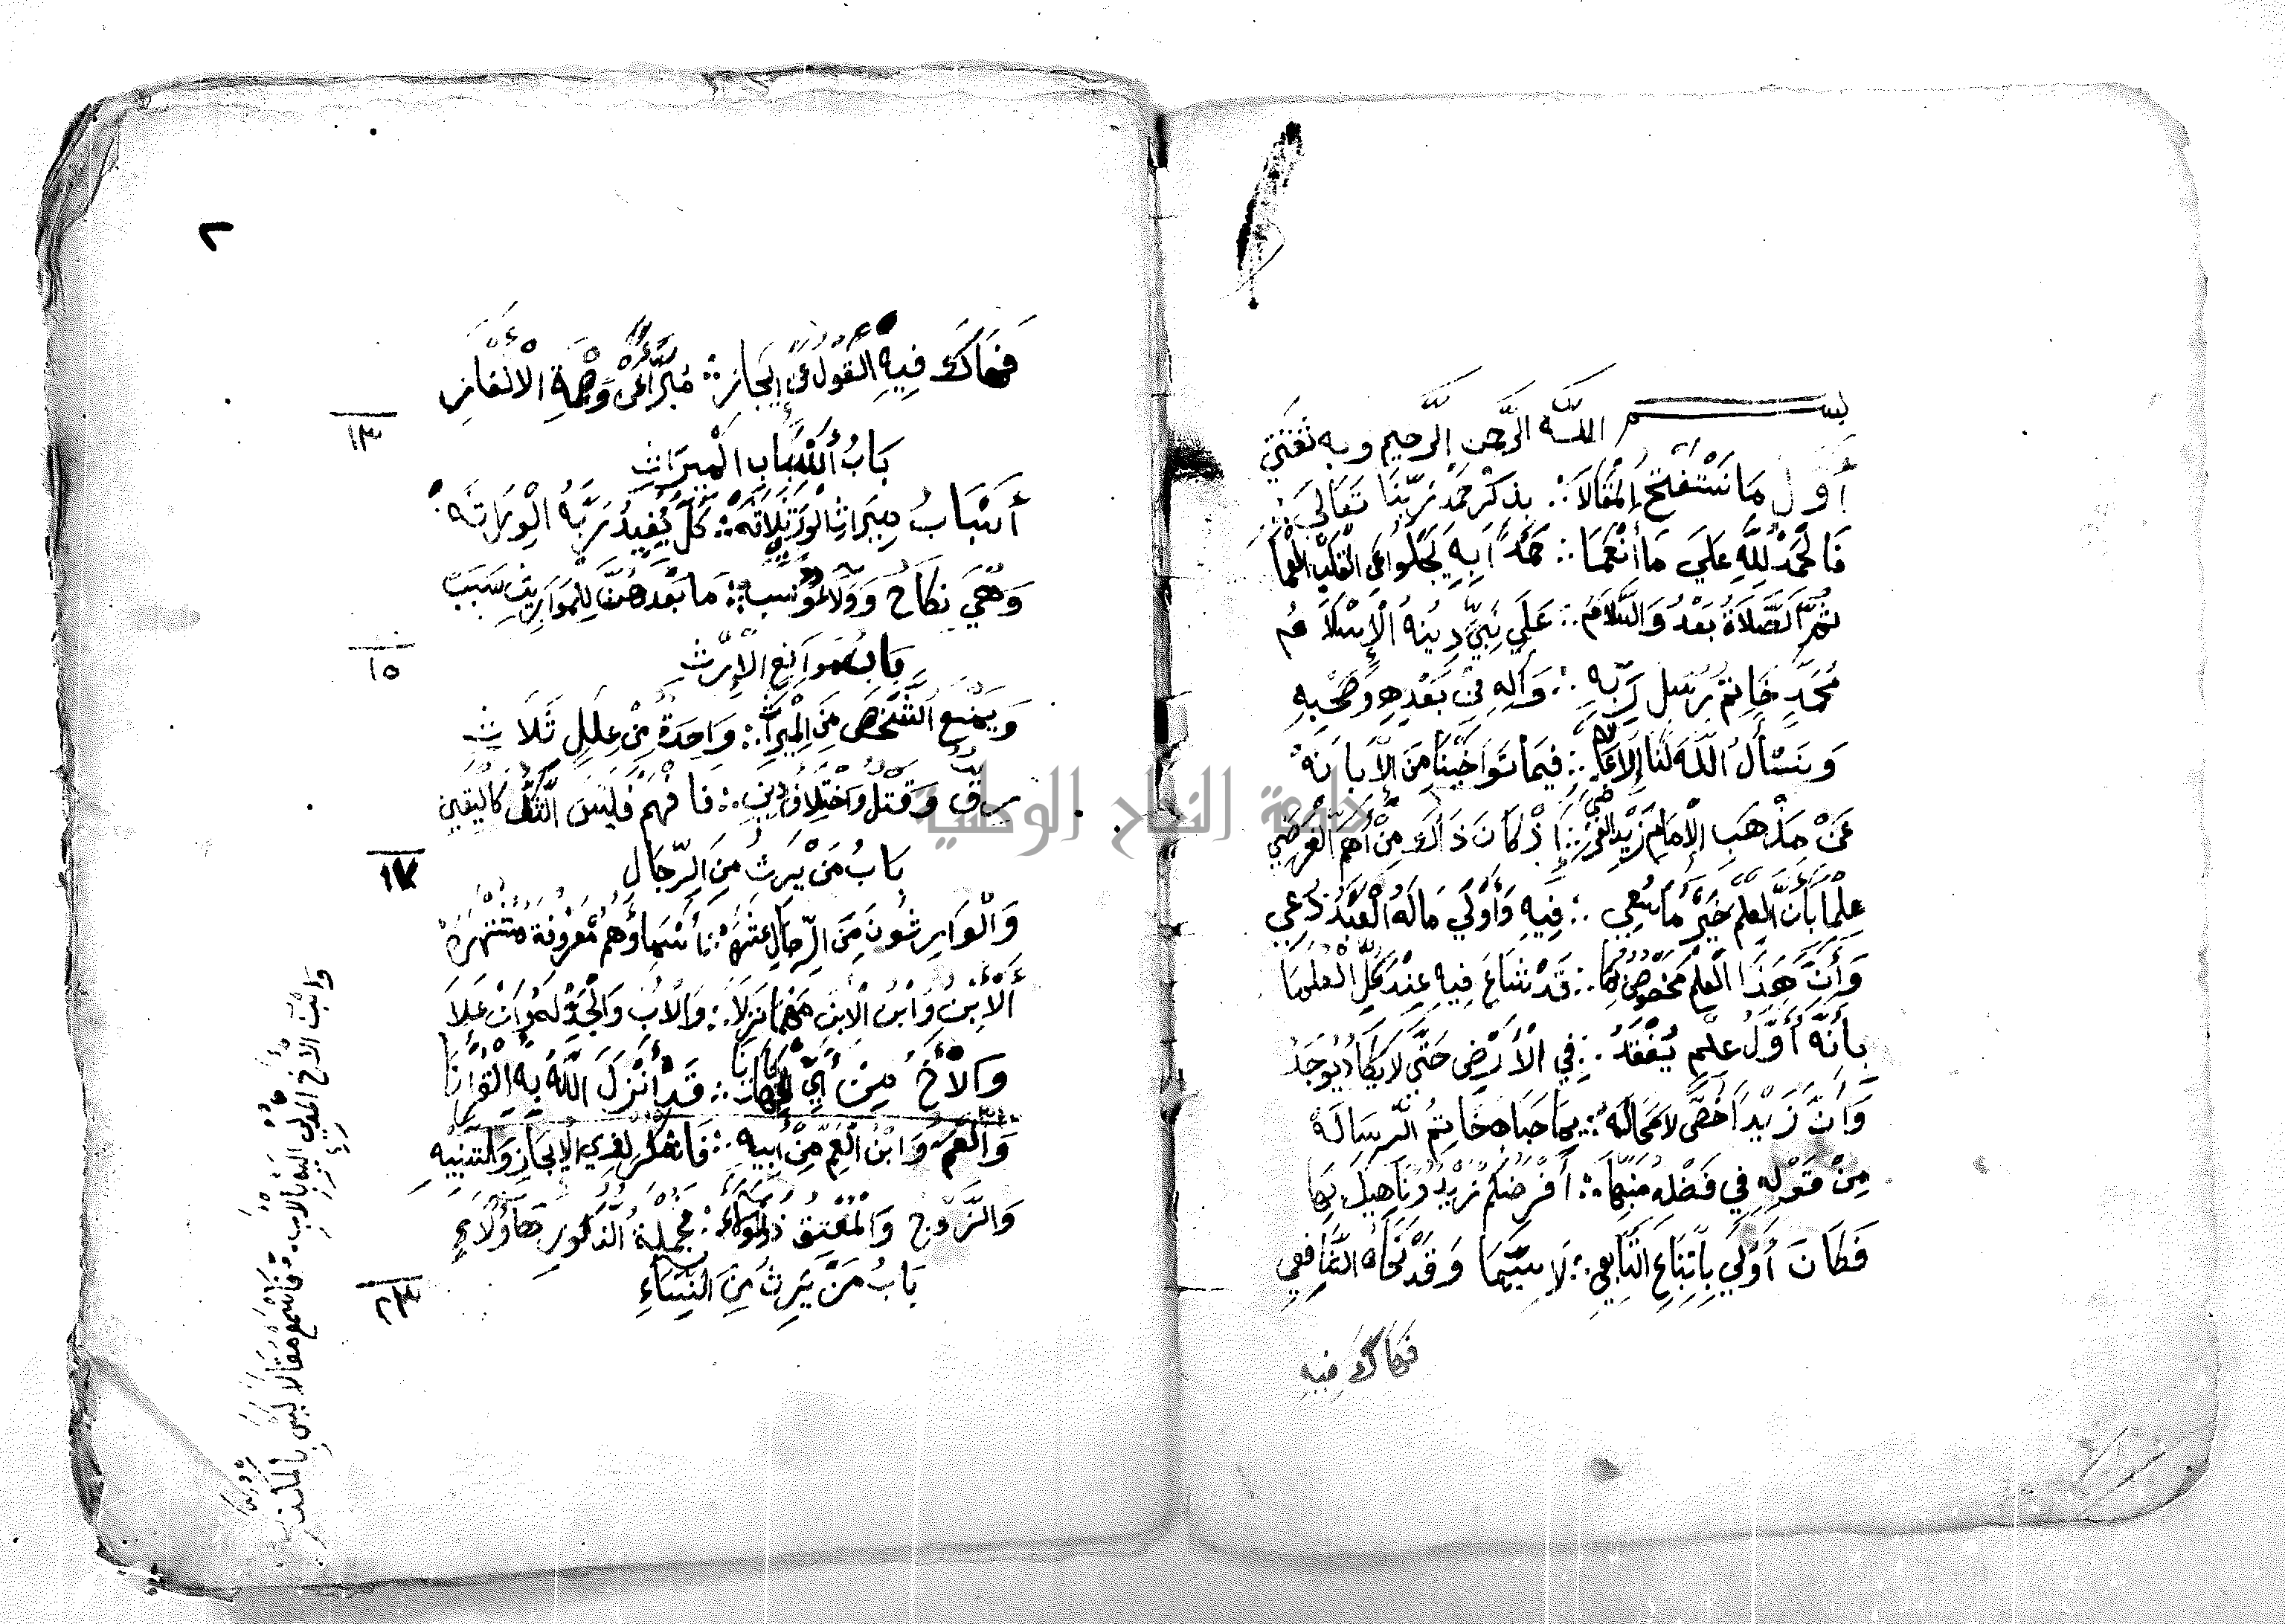 بسم الله الرحمن الرحيم وبه ثقتي
أَوَّلُ مَا نَسْتَفْتِحُ الْمَقَالَا ∴ بِذِكْرِ حَمْدِ رَبِّنَا تَعَالَى
فَالْحَمْدُ لِلَّهِ عَلَى مَا أَنْعَمَا ∴ حَمْدًا بِهِ يَجْلُوا عَنِ الْقَلْبِ الْعَمَا
ثُمَّ الصَّلَاةُ بَعْدُ وَالسَّلَامُ ∴ عَلَى نَبِيٍّ دِينُهُ الْإِسْلَامُ
مُحَمَّدٍ خَاتَمِ رُسْلِ رَبِّهِ ∴ وَآلِهِ مِنْ بَعْدِهِ وَصَحْبِهِ
وَنَسْأَلُ اللَّهَ لَنَا الْإِعَانَهْ ∴ فِيمَا تَوَاخَيْنَا مِنَ الْإِبَانَهْ
عَنْ مَذْهَبِ الْإِمَامِ زَيْدِ الْفَرَضِي ∴ إِذْ كَانَ ذَاكَ مِنْ أَهَمِّ الْغَرَضِ
عِلْمًا بِأَنَّ الْعِلْمَ خَيْرُ مَا سُعِي ∴ فِيهِ وَأَوْلَى مَا لَهُ الْعَبْدُ دُعِي
وَأَنَّ هَذَا الْعِلْمَ مَخْصُوصٌ بِمَا ∴ قَدْ شَاعَ فِيهِ عِنْدَ كُلِّ الْعُلَمَا
بِأَنَّهُ أَوَّلُ عِلْمٍ يُفْقَدُ ∴ فِي الْأَرْضِ حَتَّى لَا يَكَادُ يُوجَدُ
وَأَنَّ زَيْدًا خُصَّ لَا مَحَالَهْ ∴ بِمَا حَبَاهُ خَاتِمُ الرِّسَالَهْ
مِنْ قَوْلِهِ فِي فَضْلِهِ مُنَبِّهَا ∴ أَفْرَضُكُمْ زَيْدٌ وَنَاهِيكَ بِهَا
فَكَانَ أَوْلَى بِاتِّبَاعِ التَّابِعِي ∴ لَا سِيَّمَا وَقَدْ نَحَاهُ الشَّافِعِي
فهاك فيه
٢
فَهَاكَ فِيهِ الْقَوْلَ عَنْ إِيجَازِ ∴ مُبَرَّأً عَنْ وَصْمَةِ الْأَلْغَازِ
١٣
بَابُ أَسْبَابِ الْمِيرَاثِ
أَسْبَابُ مِيرَاثِ الْوَرَى ثَلَاثَهْ ∴ كُلٌّ يُفِيدُ رَبَّهُ الْوِرَاثَهْ
وَهِيَ نِكَاحٌ وَوَلَاءٌ وَنَسَبْ ∴ مَا بَعْدَهُنَّ لِلْمَوَارِيثِ سَبَبْ
١٥
بَابُ مَوَانِعِ الْإِرْثِ
وَيَمْنَعُ الشَّخْصَ مِنَ الْمِيرَاثِ ∴ وَاحِدَةٌ مِنْ عِلَلٍ ثَلَاثِ
رِقٌّ وَقَتْلٌ وَاخْتِلَافُ دِينِ ∴ فَافْهَمْ فَلَيْسَ الشَّكُّ كَالْيَقِينِ
١٧
بَابُ مَنْ يَرِثُ مِنَ الرِّجَالِ
وَالْوَارِثُونَ مِنَ الرِّجَالِ عَشَرَهْ ∴ أَسْمَاؤُهُمْ مَعْرُوفَةٌ مُشْتَهِرَهْ
أَلْإِبْنُ وَابْنُ الْإِبْنِ مَهْمَا نَزَلَا ∴ وَالْأَبُ وَالْجَدُّ لَهُ وَإِنْ عَلَا
وَالْأَخُ مِنْ أَيِّ الْجِهَاتِ كَانَا ∴ قَدْ أَنْزَلَ اللَّهُ بِهِ الْقُرْآنَا
وَالْعَمُّ وَابْنُ الْعَمِّ مِنْ أَبِيهِ ∴ فَاشْكُرْ لِذِي الْإِيجَازِ وَالتَّنْبِيهِ
وَالزَّوْجُ وَالْمُعْتِقُ ذُو الْوَلَاءِ ∴ فَجُمْلَةُ الذُّكُورِ هَؤُلَاءِ
بَابُ مَنْ يَرِثُ مِنَ النِّسَاءِ
٢٣
وابن الأخ المدلي اليه بالأب ∴ فاسمع مقالا ليس بالمكذب
جامعة النجاح الوطنية